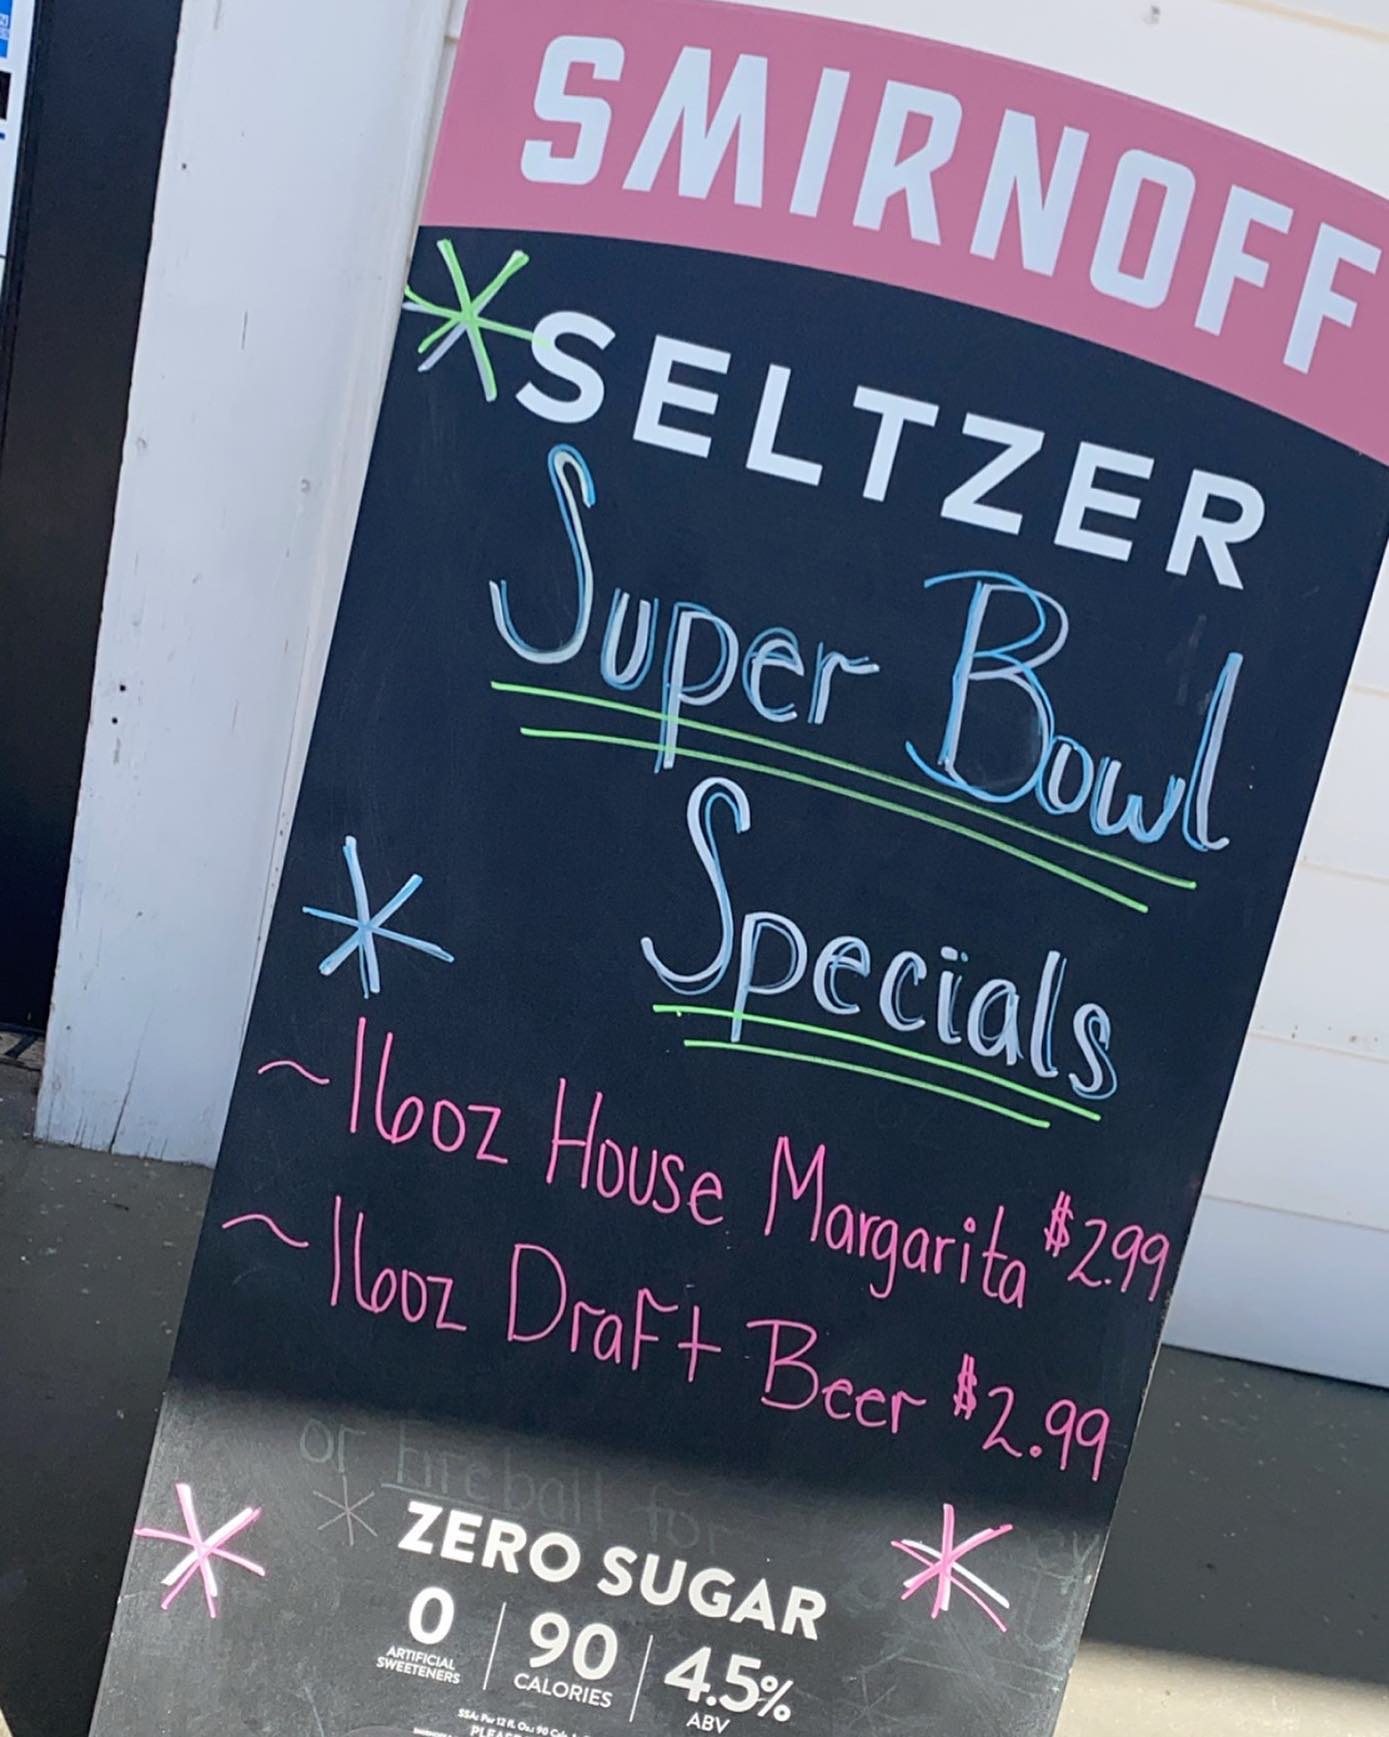 SMIRNOFF
SELTZER
Super Bowl
Specials
~16oz House Margarita $2.99
~16oz Draft Beer $2.99
or fireball for
ZERO SUGAR
0 ARTIFICIAL SWEETENERS
90 CALORIES
4.5% ABV
SSA: Per 12 fl. Oz.: 90